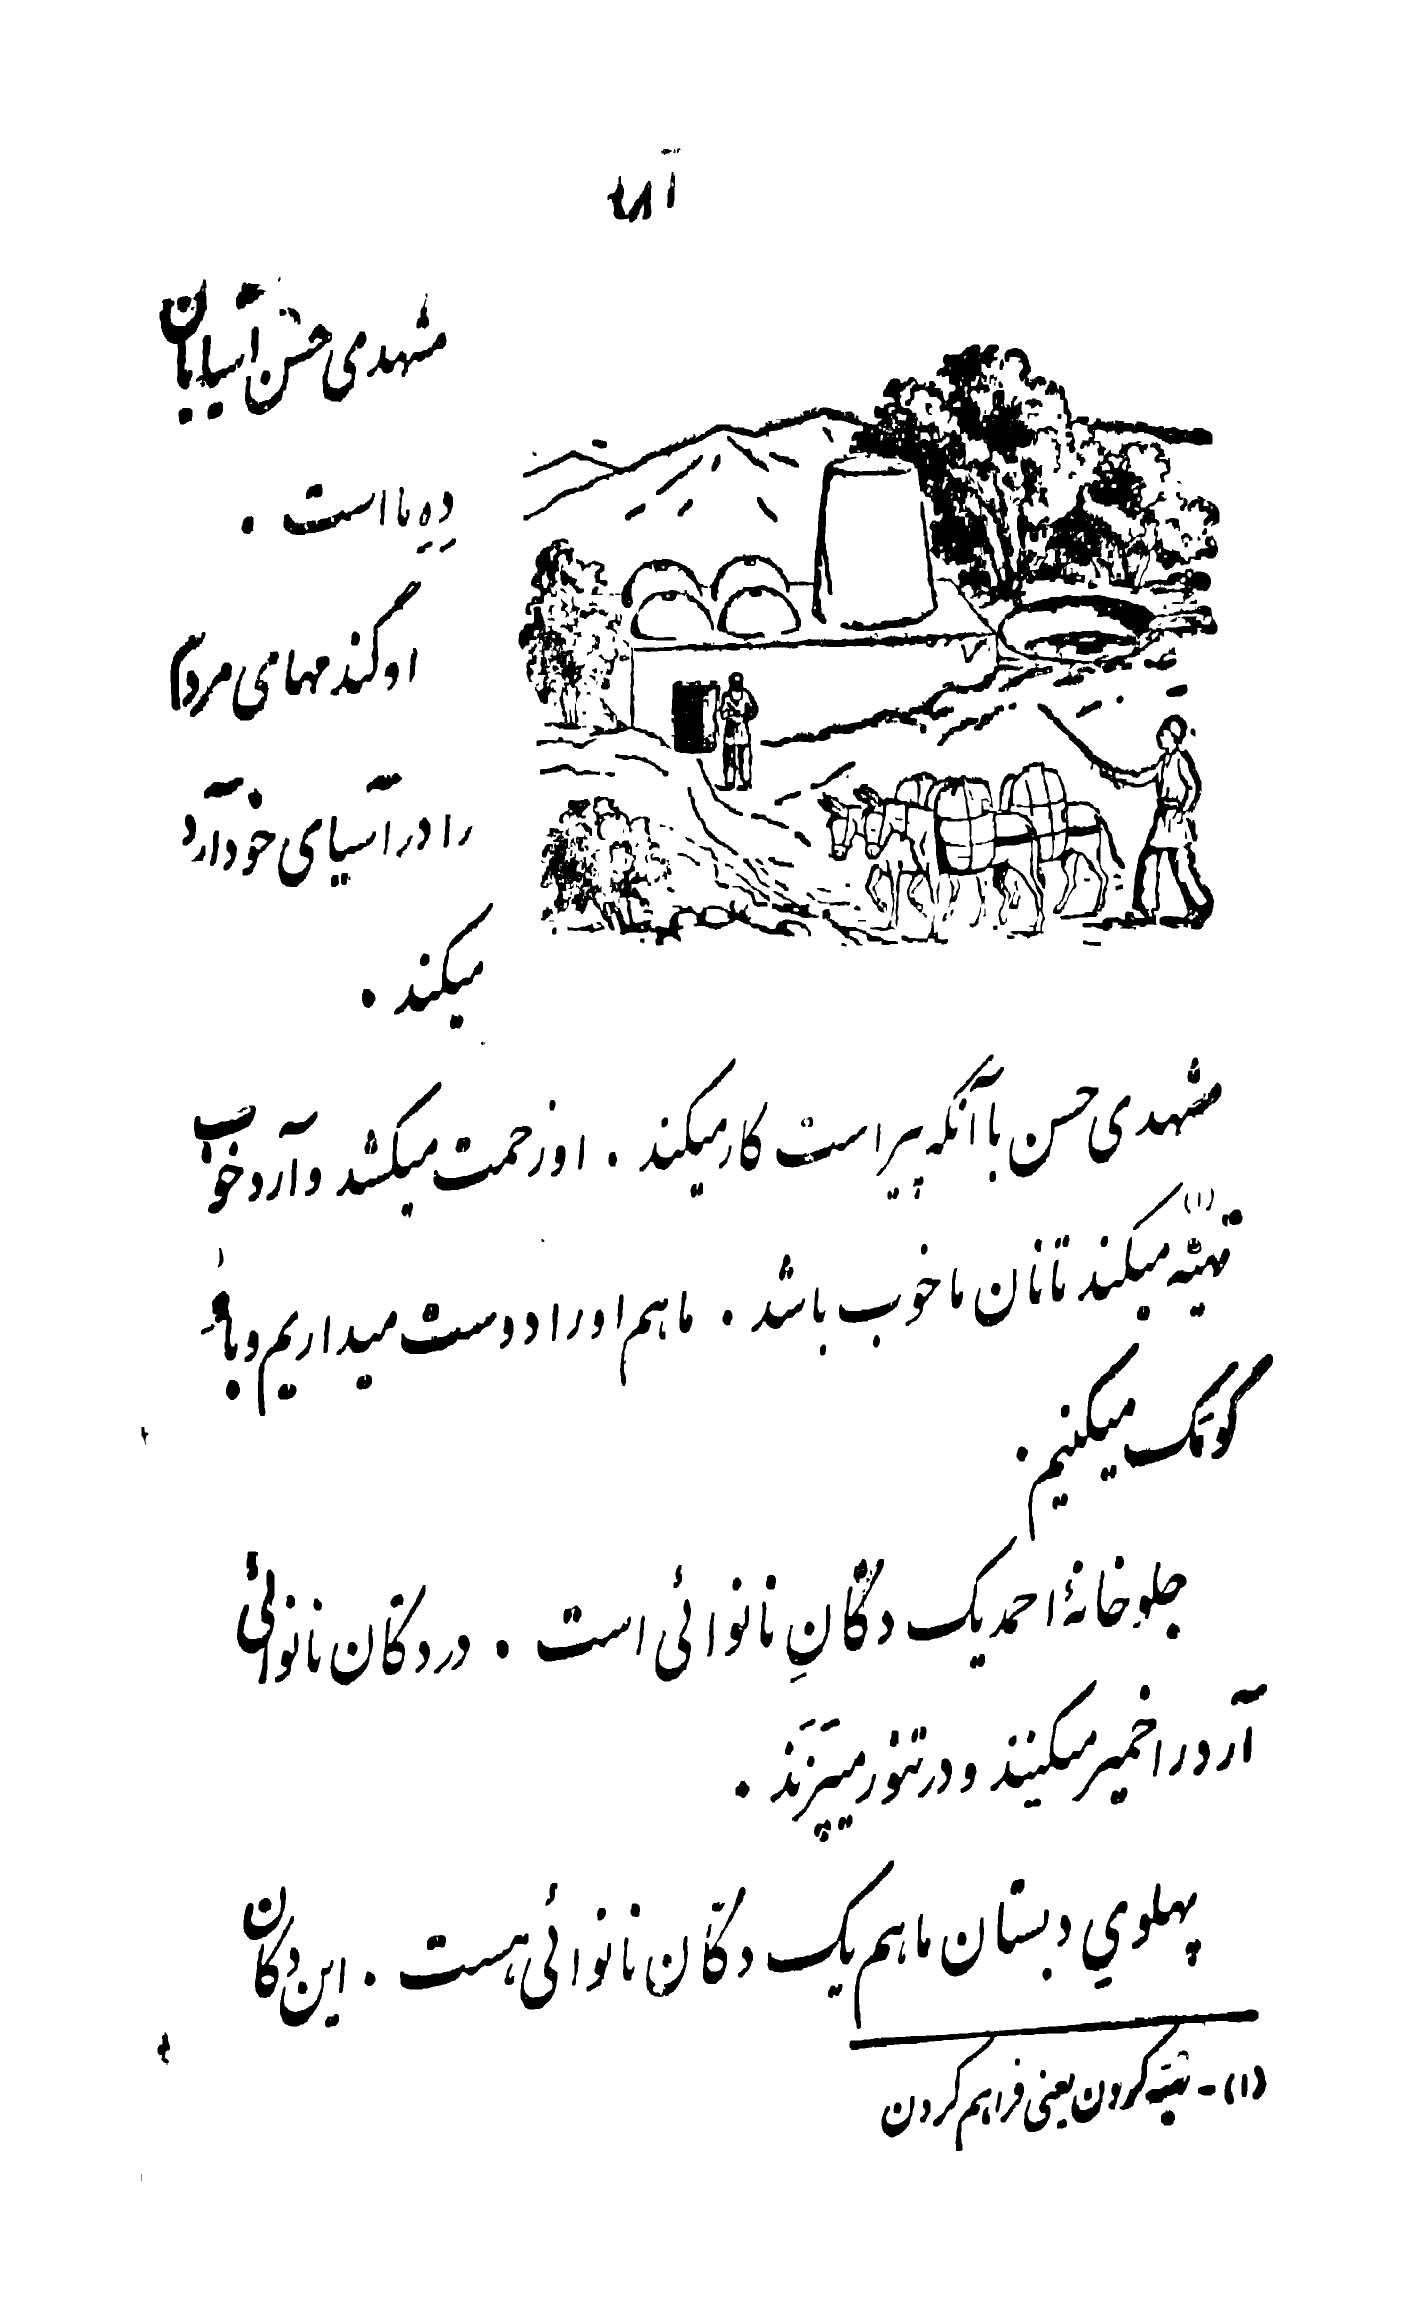 مشهدی حسن آسیابان
دِهِ ما است .
او گندمهای مردم
را در آسیای خود آرد
میکند .
مشهدی حسن با آنکه پیر است کار میکند . او زحمت میکشد و آرد خوب
تهیّه (۱) میکند تا نان ما خوب باشد . ما هم او را دوست میداریم و باو
کومک میکنیم .
جلو خانهٔ احمد یک دکّانِ نانوائی است . در دکّان نانوائی
آرد را خمیر میکنند و در تنور میپَزَند .
پهلویِ دبستان ما هم یک دکّان نانوائی هست . این دکّان
(۱) - تهیّه کردن یعنی فراهم کردن